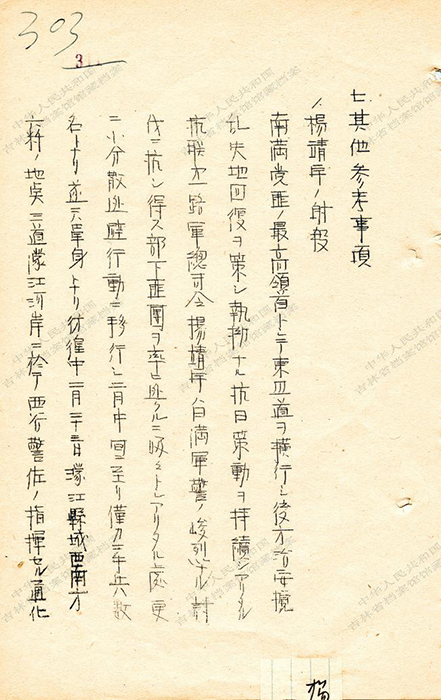 303
七其他參考事項
1.楊靖宇ノ射殺
南満党匪ノ最高領首トシテ東辺道ヲ横行シ後方治安撹
乱失地回復ヲ策シ執拗ナル抗日策動ヲ持續シアリタル
抗联第一路軍總司令楊靖宇ハ日満軍警ノ峻烈ナル討
伐ニ抗シ得ス部下匪團ヲ率ヒ逃クルニ汲々トシアリタル處更
ニ小分散逃避行動ニ移行シ二月中旬ニ至リ僅カニ兵数
名トナリ遂ニ單身トナリ彷徨中二月二十三日濛江縣城西南方
六粁ノ地点三道濛江河岸ニ於テ西谷警佐ノ指揮セル通化
楊
中华人民共和国
吉林省档案馆馆藏档案